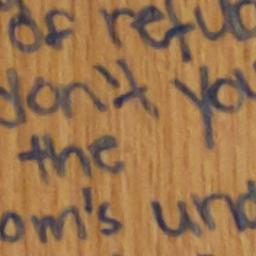 of refu
don't, you
the
om's und